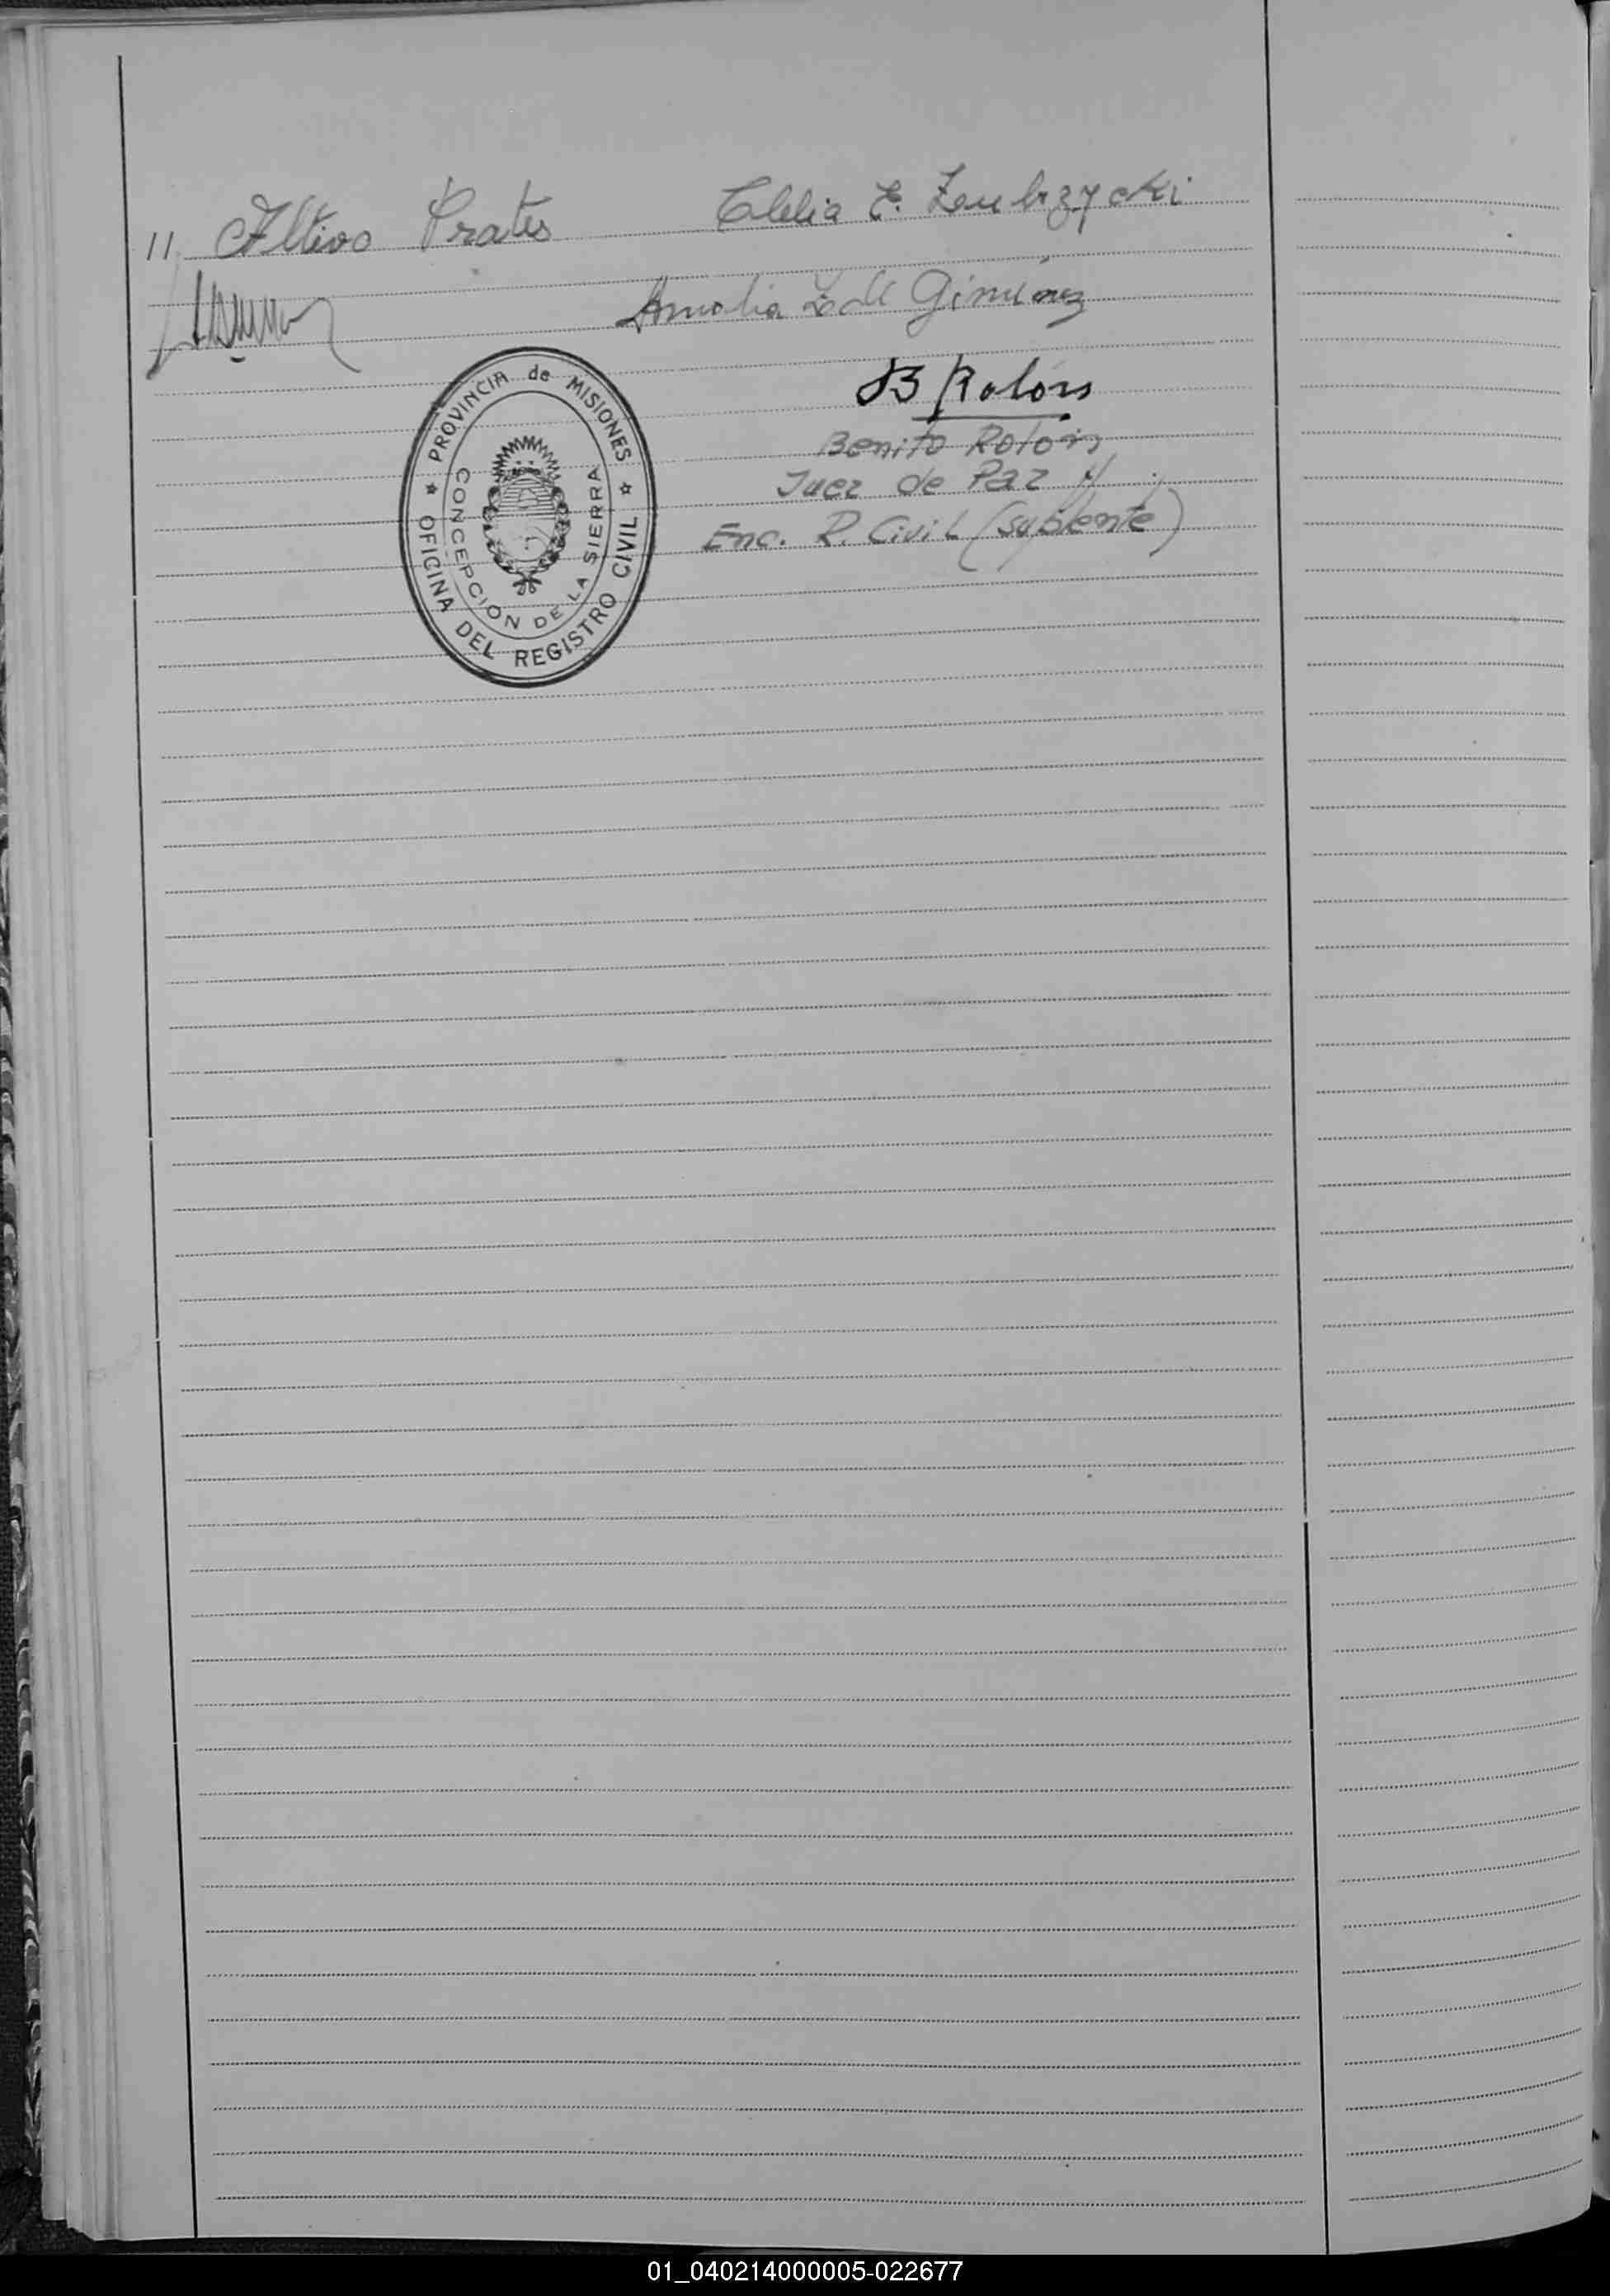 11 Altivo Prates Clelia E. Zembrzycki
Amalia Z de Giménez
B Rolón
Benito Rolón
Juez de Paz y
Enc. R. Civil (suplente)
PROVINCIA de MISIONES
OFICINA DEL REGISTRO CIVIL
CONCEPCION DE LA SIERRA
01_040214000005-022677